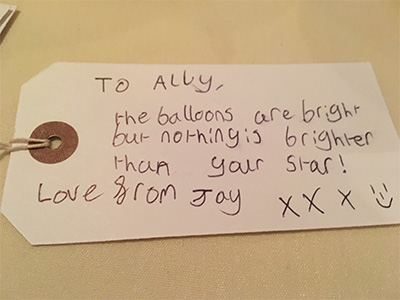 TO ALLY,
the balloons are bright
but nothing is brighter
than your star!
Love from Jay XXX